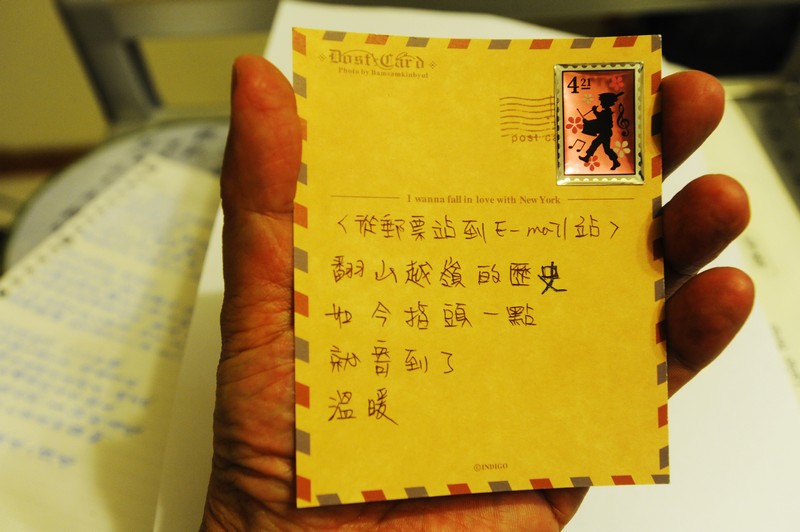 Post Card
Photo by Bamsamkinbyul
4 21
post c
I wanna fall in love with New York
〈從郵票站到E-mail站〉
翻山越嶺的歷史
如今指頭一點
就寄到了
溫暖
©INDIGO